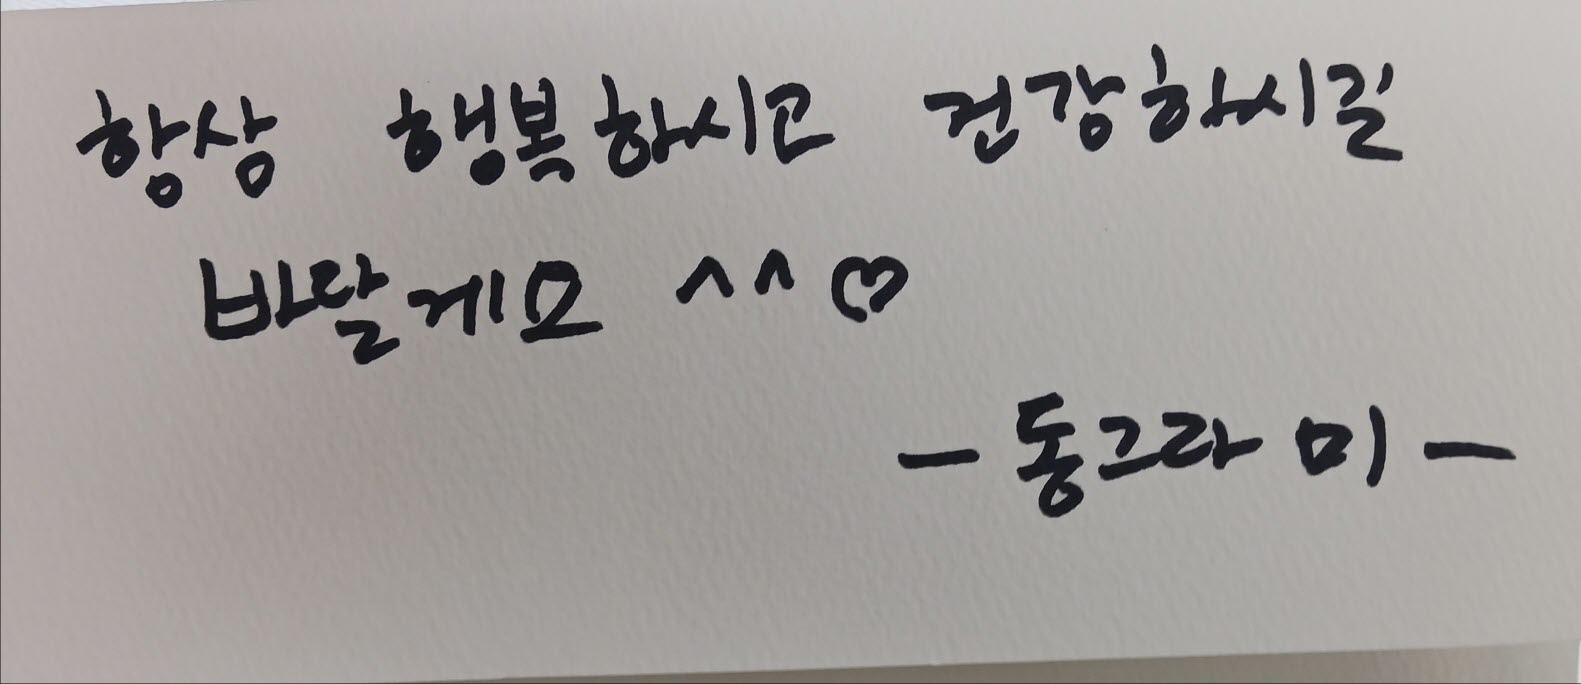 항상 행복하시고 건강하시길
바랄게요 ^^ ♡
- 동그라미 -